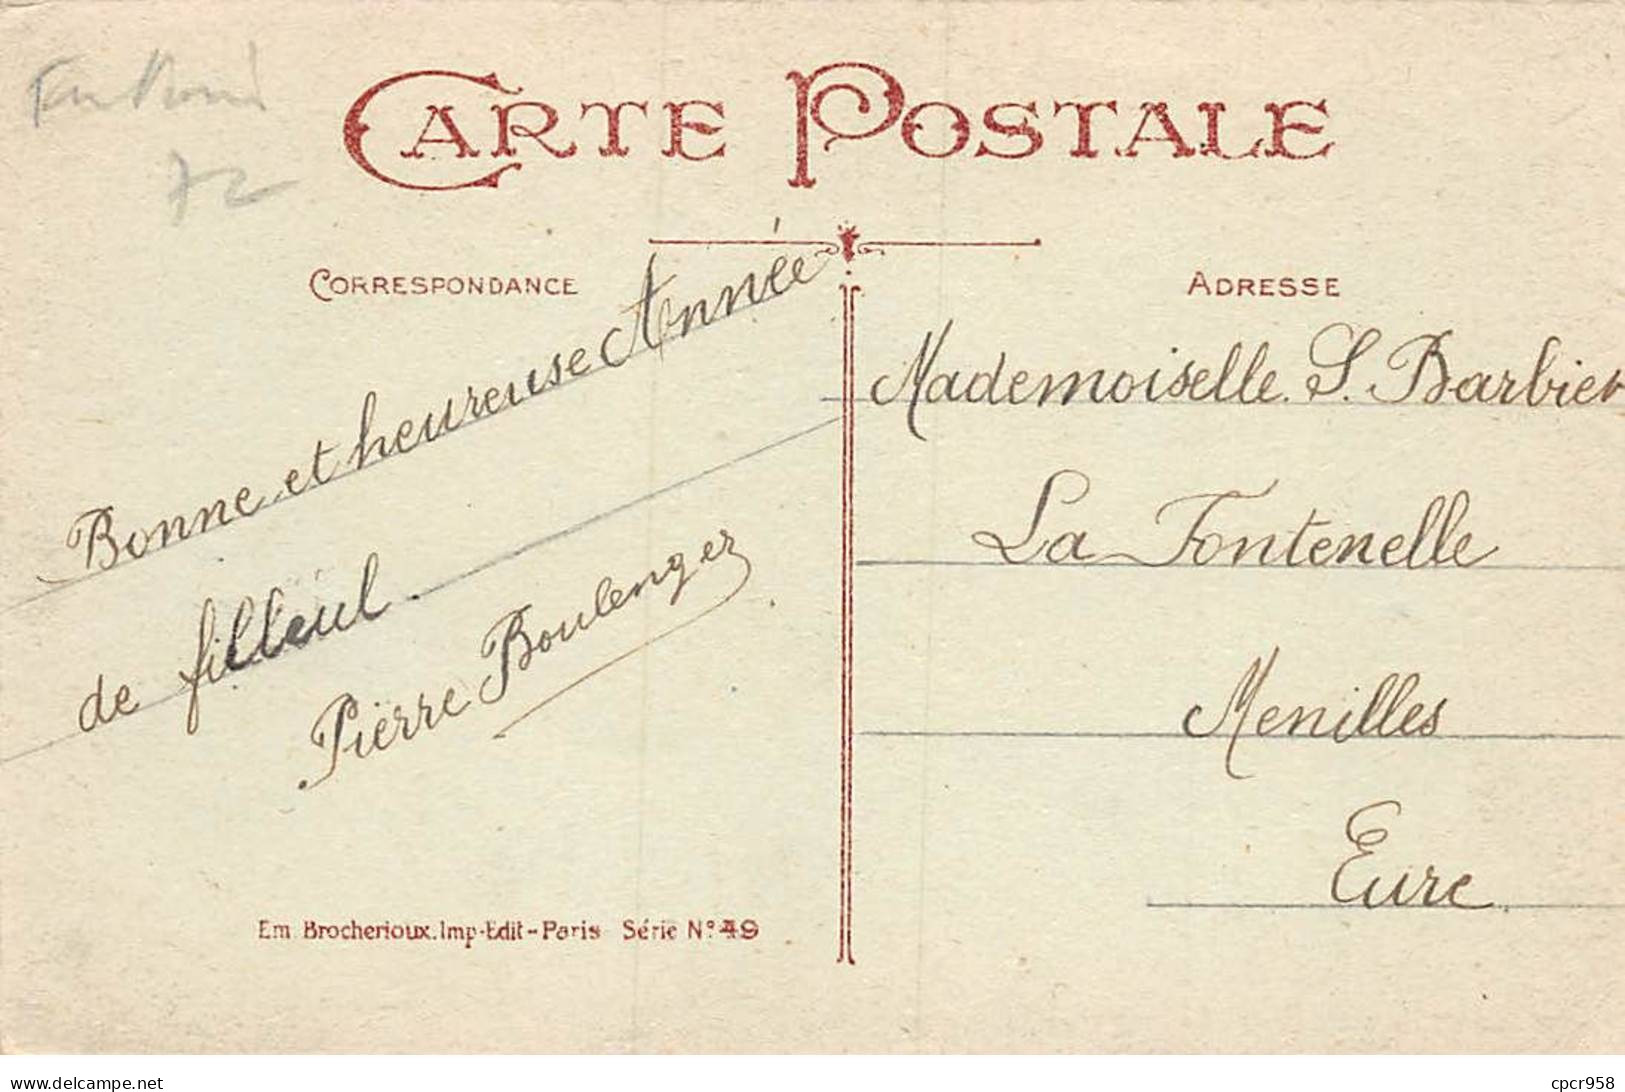 CARTE POSTALE
CORRESPONDANCE
ADRESSE
Bonne et heureuse Année
de filleul.
Pierre Boulenger
Mademoiselle. S. Barbier
La Fontenelle
Menilles
Eure
Em Brocherioux. Imp-Edit-Paris Série N° 49
72
www.delcampe.net
cpcr958